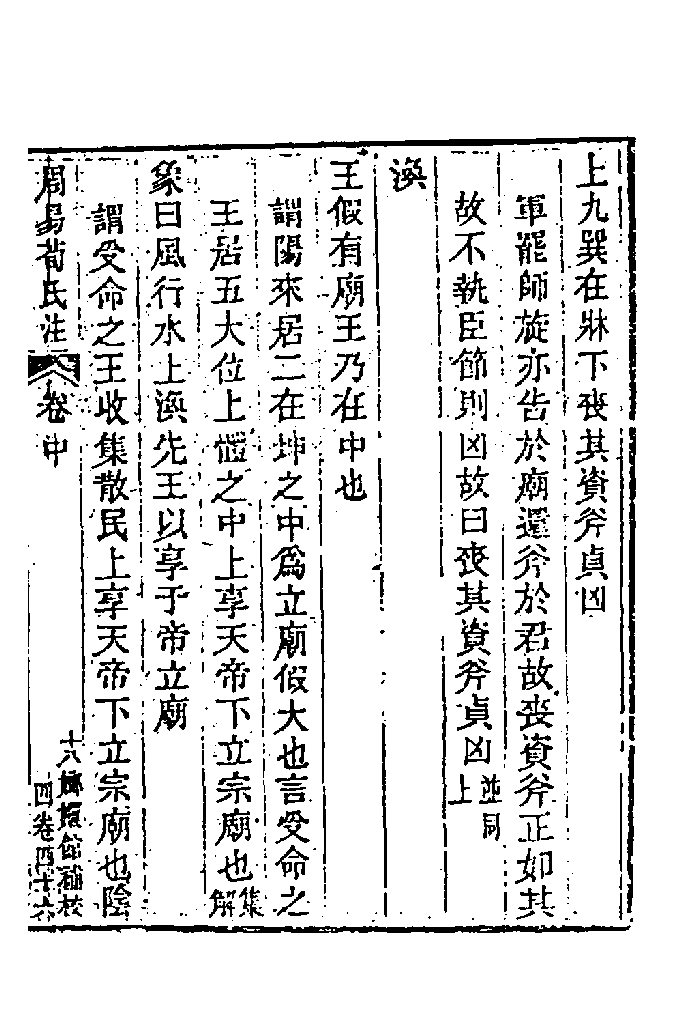 上九巽在牀下喪其資斧貞凶
軍罷師旋亦告於廟還斧於君故喪資斧正如其
故不執臣節則凶故曰喪其資斧貞凶並同上
渙
王假有廟王乃在中也
謂陽來居二在坤之中爲立廟假大也言受命之
王居五大位上體之中上享天帝下立宗廟也集解
象曰風行水上渙先王以享于帝立廟
謂受命之王收集散民上享天帝下立宗廟也陰
周易荀氏注 卷中
十八嫏嬛館補校
四卷四十六